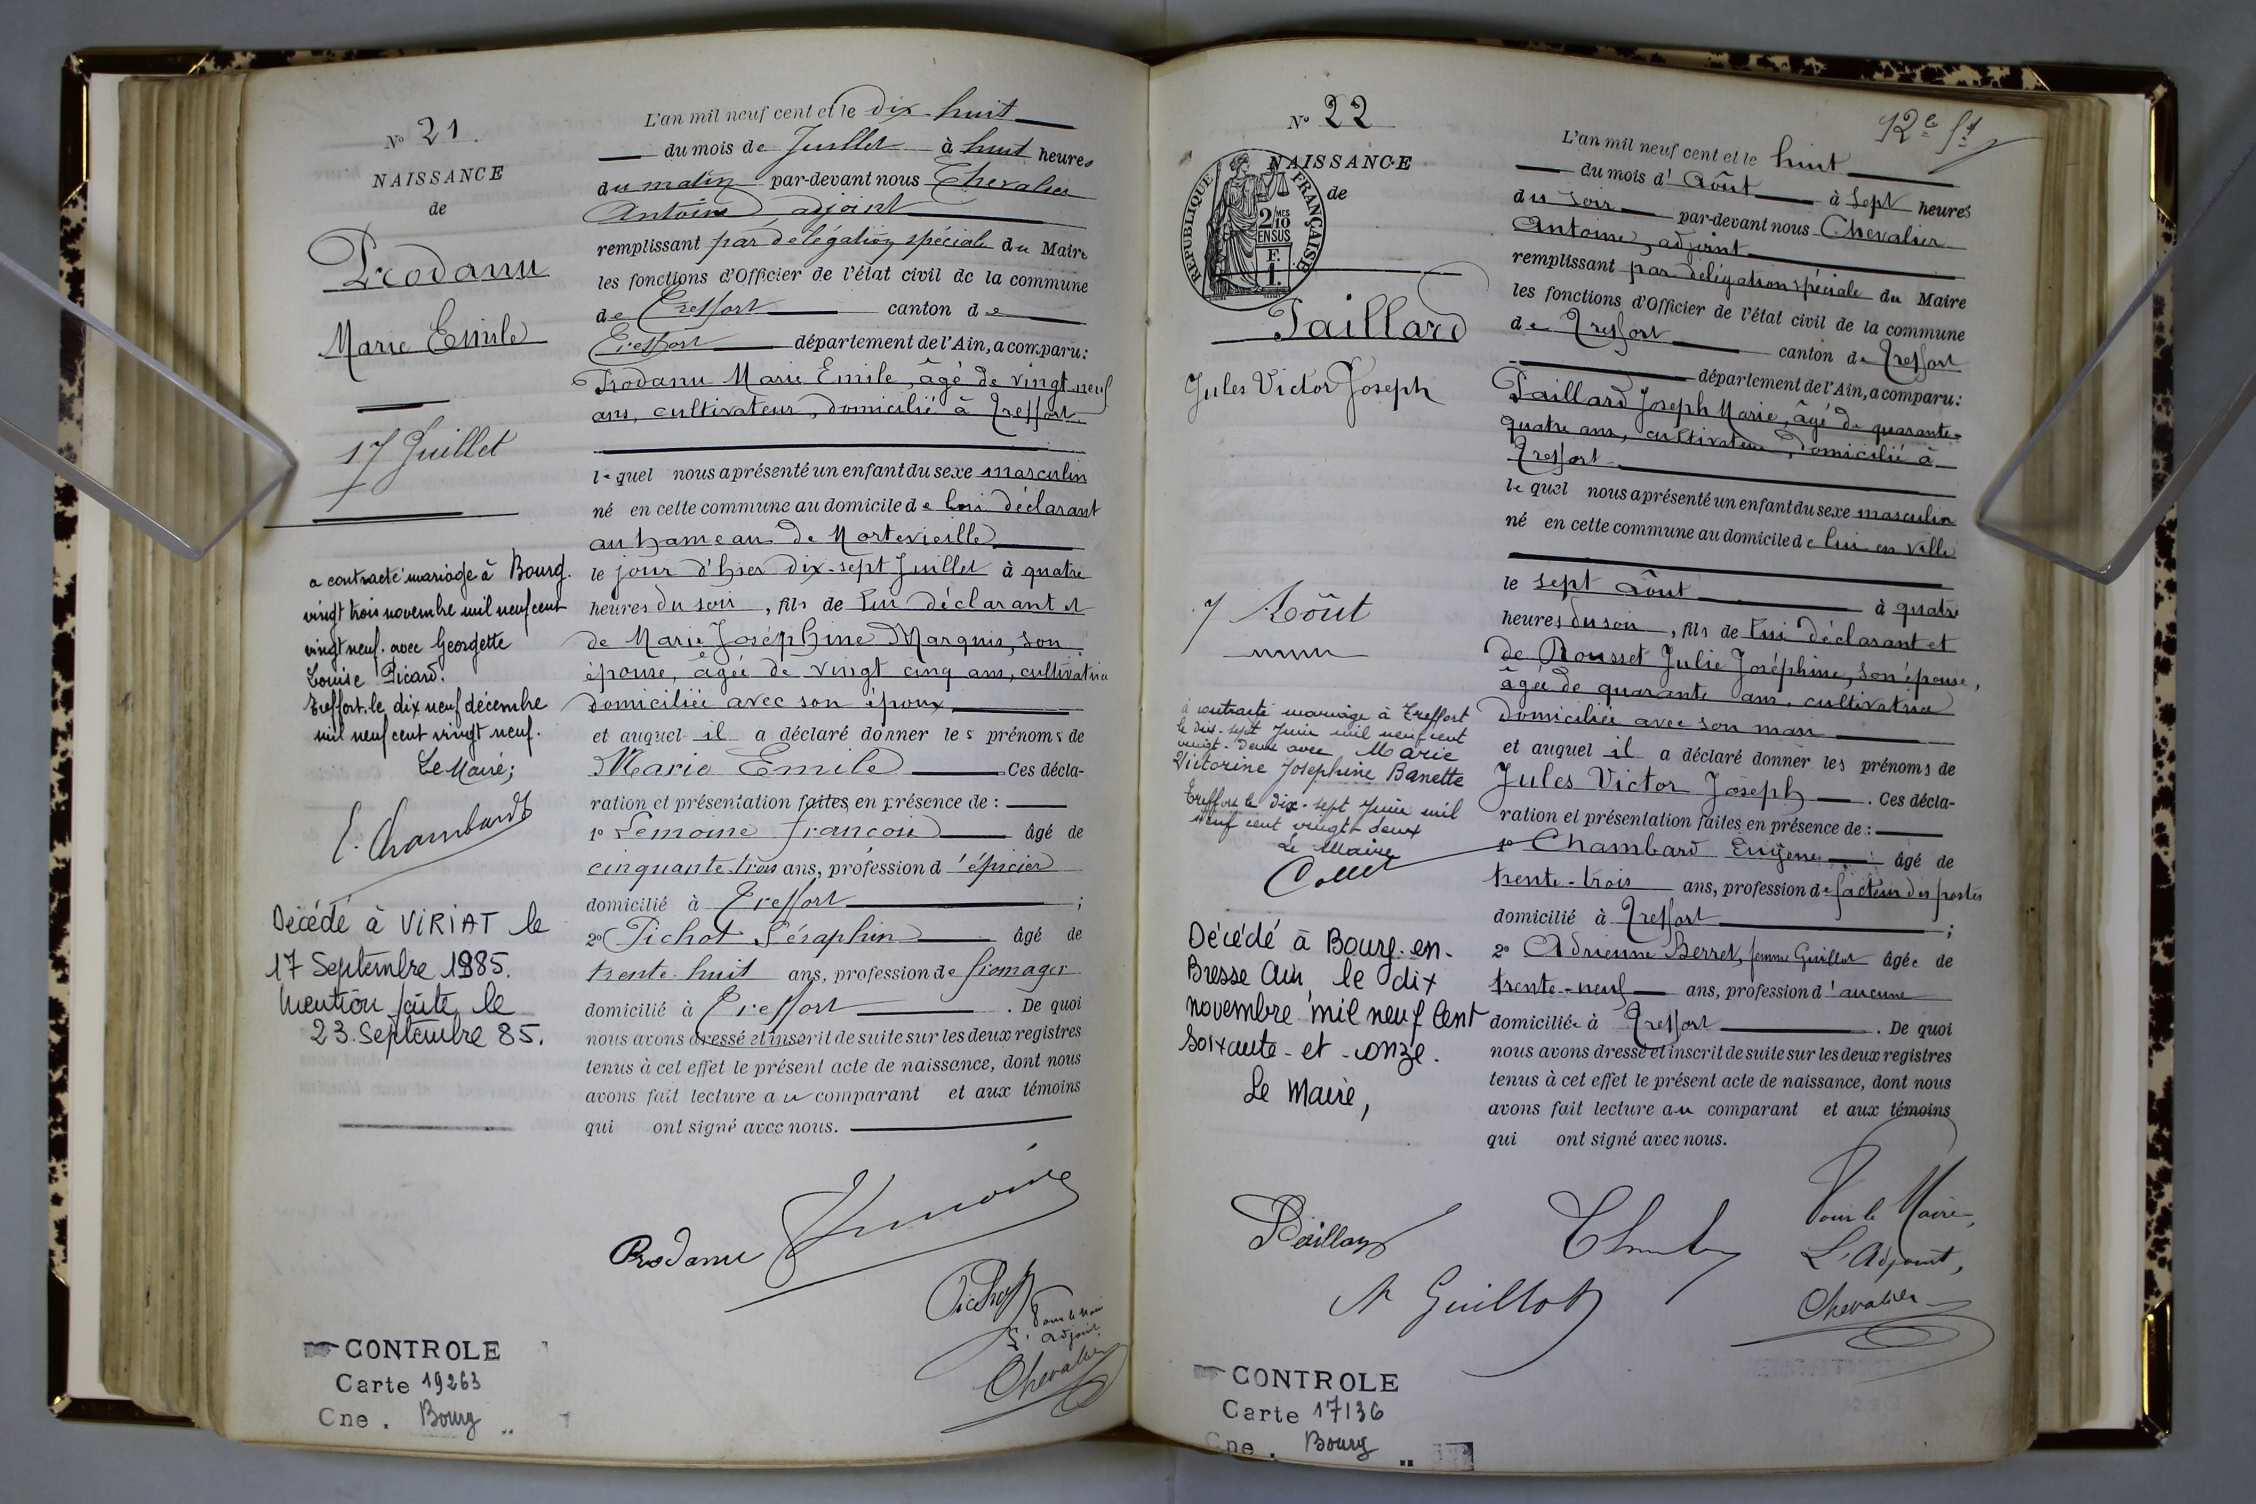 No 21.
NAISSANCE
de
Prodanu
Marie Emile
17 Juillet
a contracté mariage à Bourg.
vingt trois novembre mil neuf cent
vingt neuf. avec Georgette
Louise Picard.
Treffort, le dix neuf décembre
mil neuf cent vingt neuf.
Le Maire;
E. Chambard
Décédé à VIRIAT le
17 Septembre 1985.
Mention faite le
23. Septembre 85.
CONTROLE
Carte 19263
Cne. Bourg
L'an mil neuf cent et le dix-huit
du mois de Juillet à huit heures
du matin par-devant nous Chevalier
Antoine, adjoint
remplissant par délégation spéciale du Maire
les fonctions d'Officier de l'état civil de la commune
de Treffort canton de
Treffort département de l'Ain, a comparu:
Prodanu Marie Emile, âgé de vingt-neuf
ans, cultivateur, domicilié à Treffort
lequel nous a présenté un enfant du sexe masculin
né en cette commune au domicile de lui déclarant
au hameau de Mortevieille
le jour d'hier dix-sept Juillet à quatre
heures du soir, fils de lui déclarant et
de Marie Joséphine Marquis, son
épouse, âgée de vingt cinq ans, cultivatrice
domiciliée avec son époux
et auquel il a déclaré donner les prénoms de
Marie Emile Ces décla-
ration et présentation faites en présence de :
1o Lemoine François âgé de
cinquante-trois ans, profession d'épicier
domicilié à Treffort ;
2o Pichot Séraphin âgé de
trente-huit ans, profession de fromager
domicilié à Treffort. De quoi
nous avons dressé et inscrit de suite sur les deux registres
tenus à cet effet le présent acte de naissance, dont nous
avons fait lecture au comparant et aux témoins
qui ont signé avec nous.
Prodanu Lemoine
Pichot
Pour le Maire
L'adjoint
Chevalier
No 22
12e ft
NAISSANCE
de
REPUBLIQUE FRANÇAISE
2/10 MES
EN SUS
F.
1.
Paillard
Jules Victor Joseph
7 Août
a contracté mariage à Treffort
le dix-sept Juin mil neuf cent
vingt-deux avec Marie
Victorine Josephine Banette
Treffort le dix-sept Juin mil
neuf cent vingt-deux
Le Maire
Collet
Décédé à Bourg-en-
Bresse Ain le dix
novembre mil neuf cent
soixante-et-onze.
Le Maire,
CONTROLE
Carte 17136
Cne. Bourg
L'an mil neuf cent et le huit
du mois d'Août à sept heures
du soir par-devant nous Chevalier
Antoine, adjoint
remplissant par délégation spéciale du Maire
les fonctions d'Officier de l'état civil de la commune
de Treffort canton de Treffort
département de l'Ain, a comparu:
Paillard Joseph Marie, âgé de quarante-
quatre ans, cultivateur, domicilié à
Treffort
lequel nous a présenté un enfant du sexe masculin
né en cette commune au domicile de lui en ville
le sept Août à quatre
heures du soir, fils de lui déclarant et
de Rousset Julie Joséphine, son épouse,
âgée de quarante ans, cultivatrice
domiciliée avec son mari
et auquel il a déclaré donner les prénoms de
Jules Victor Joseph. Ces décla-
ration et présentation faites en présence de :
1o Chambard Eugène âgé de
trente-trois ans, profession de facteur des postes
domicilié à Treffort ;
2o Adrienne Berret, femme Guillot âgée de
trente-neuf ans, profession d'aucune
domiciliée à Treffort. De quoi
nous avons dressé et inscrit de suite sur les deux registres
tenus à cet effet le présent acte de naissance, dont nous
avons fait lecture au comparant et aux témoins
qui ont signé avec nous.
Paillard
A Guillot
Pour le Maire,
L'Adjoint,
Chevalier